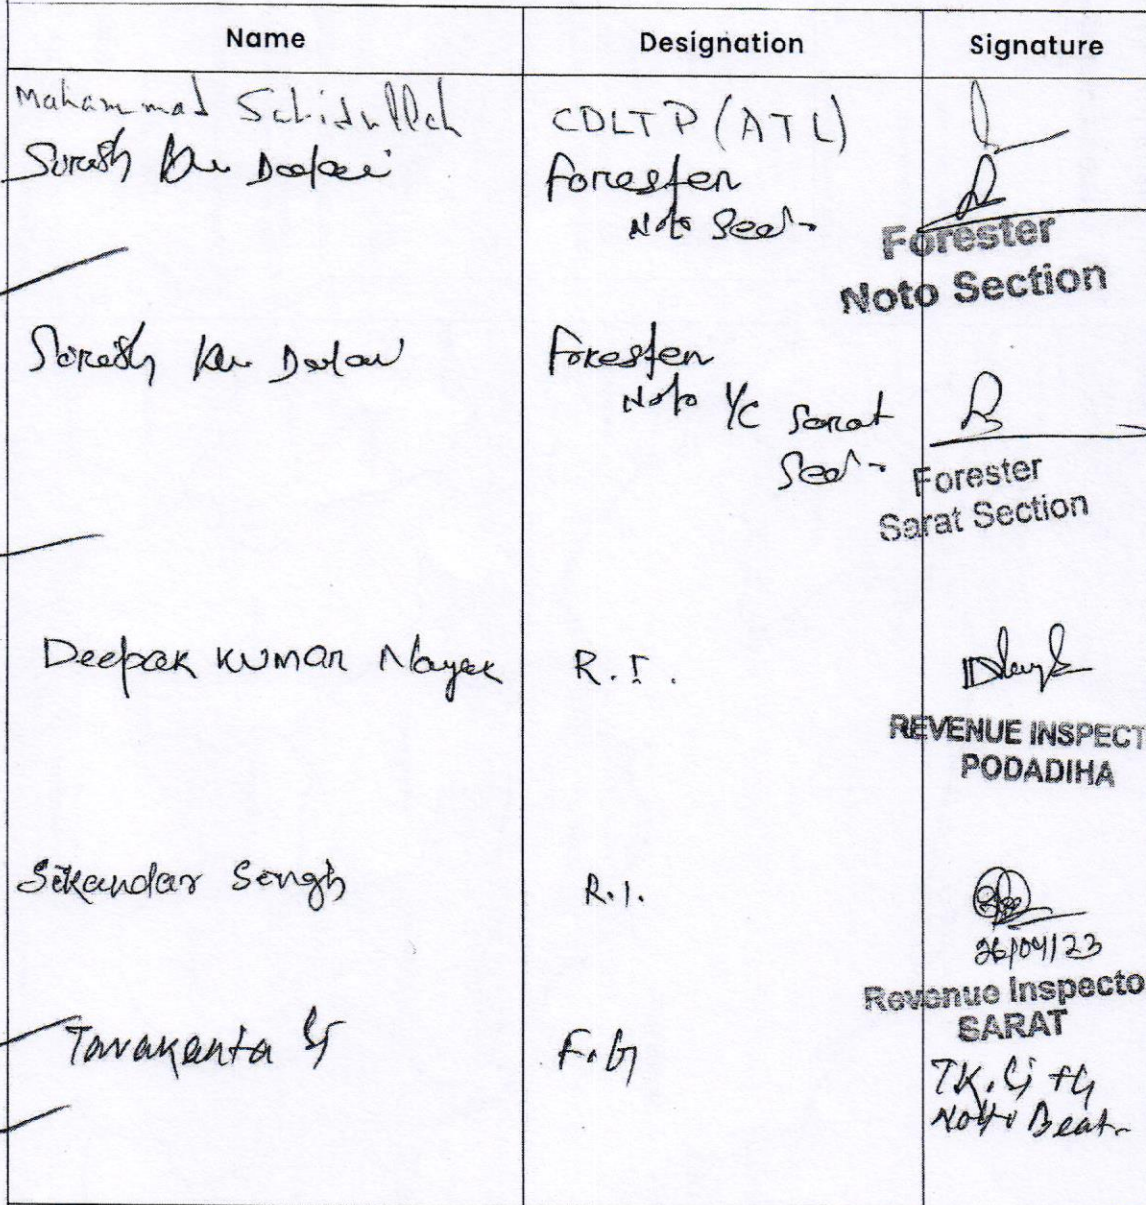 Name Designation Signature
Mahammad Sahidullah CDLTP (ATL)
Suresh Ku Forester
Noto Sect-
Forester
Noto Section
Suresh Ku Forester
Noto I/C Sarat
Sect-
Forester
Sarat Section
Deepak Kumar Nayak R.I.
REVENUE INSPECT
PODADIHA
Sikandar Singh R.I.
26/04/23
Revenue Inspecto
SARAT
Tarakanta F.G
TK.
Noto Beat